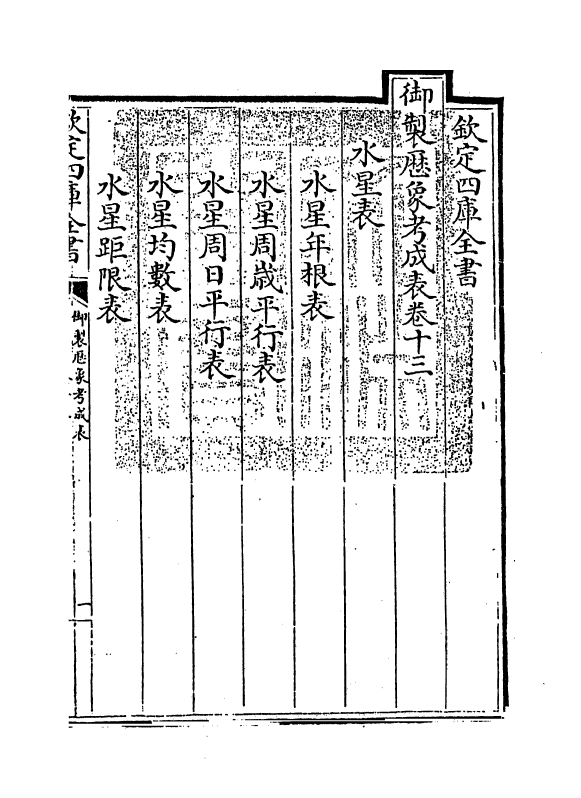 欽定四庫全書
御製厯象考成表卷十三
水星表
水星年根表
水星周歲平行表
水星周日平行表
水星均數表
水星距限表
欽定四庫全書
御製厯象考成表
一